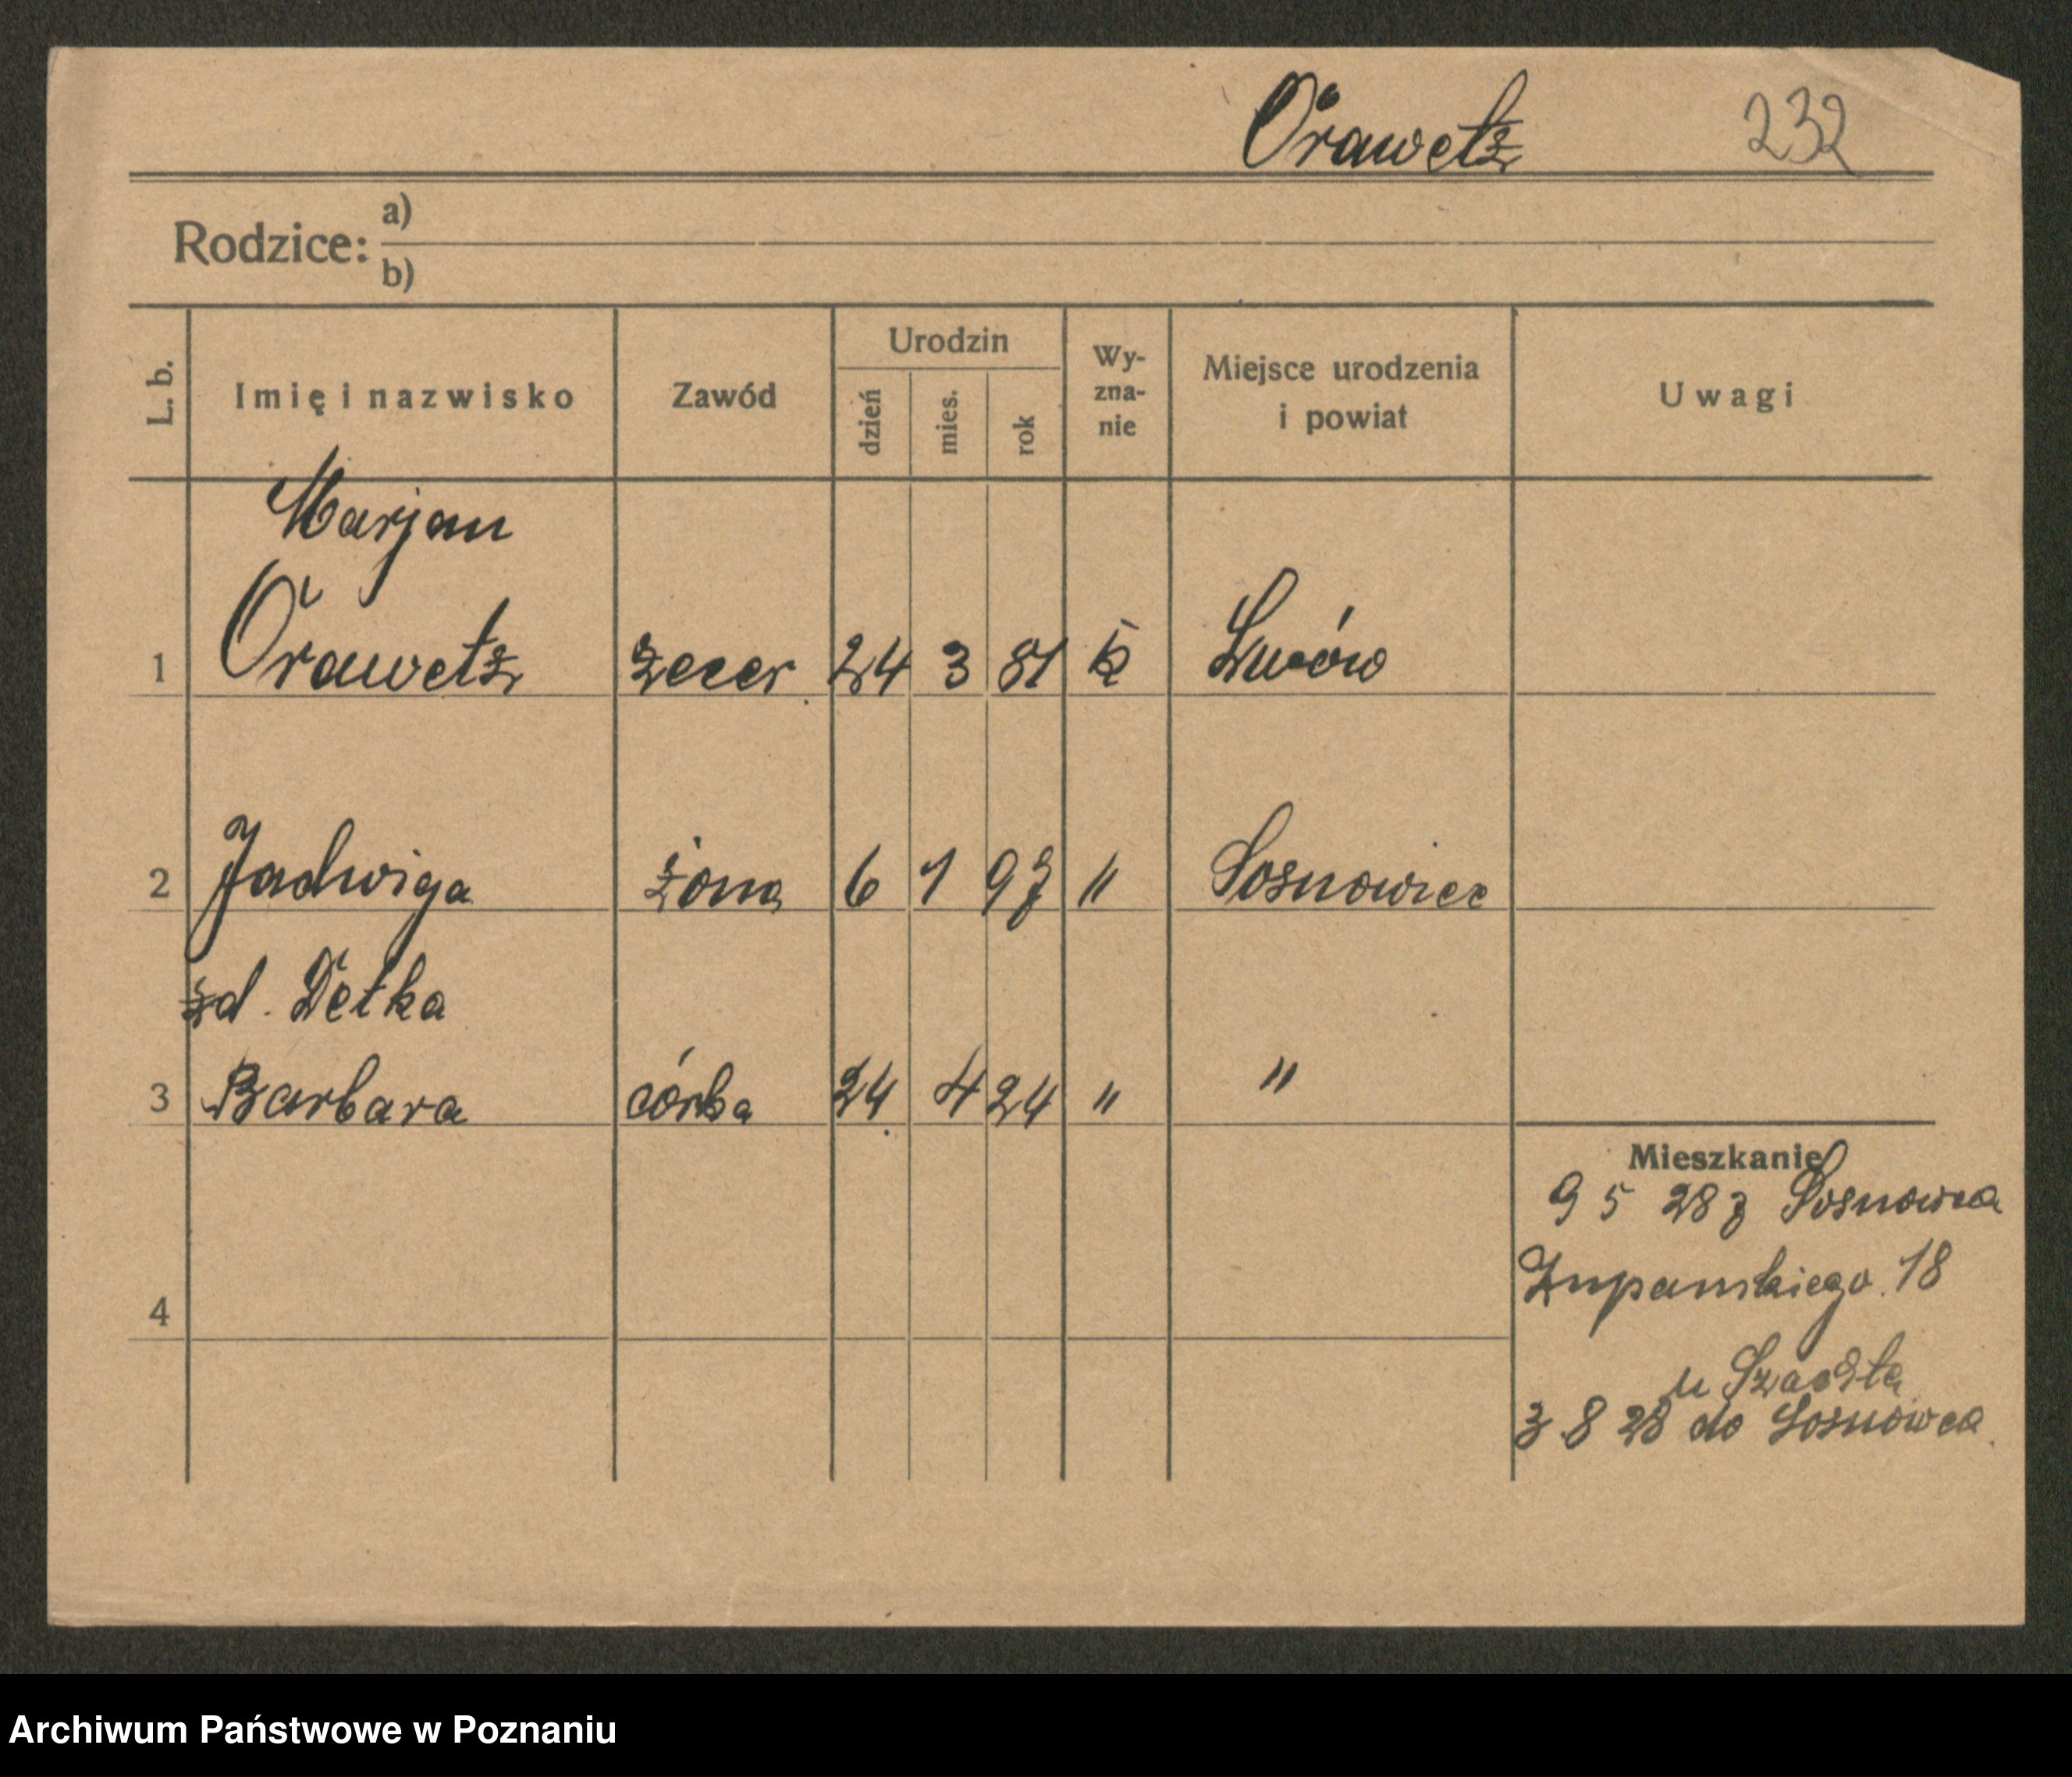 Orawetz 232
Rodzice: a)
b)
L. b. Imię i nazwisko Zawód Urodzin dzień mies. rok Wy-zna-nie Miejsce urodzenia i powiat Uwagi
Marjan
1 Orawetz zecer 24 3 81 k Lwów
2 Jadwiga żona 6 1 97 " Sosnowiec
zd. Detka
3 Barbara córka 24 4 24 " "
4
Mieszkanie
9 5 28 z Sosnowca
Żupańskiego 18
u
3 8 28 do Sosnowca
Archiwum Państwowe w Poznaniu